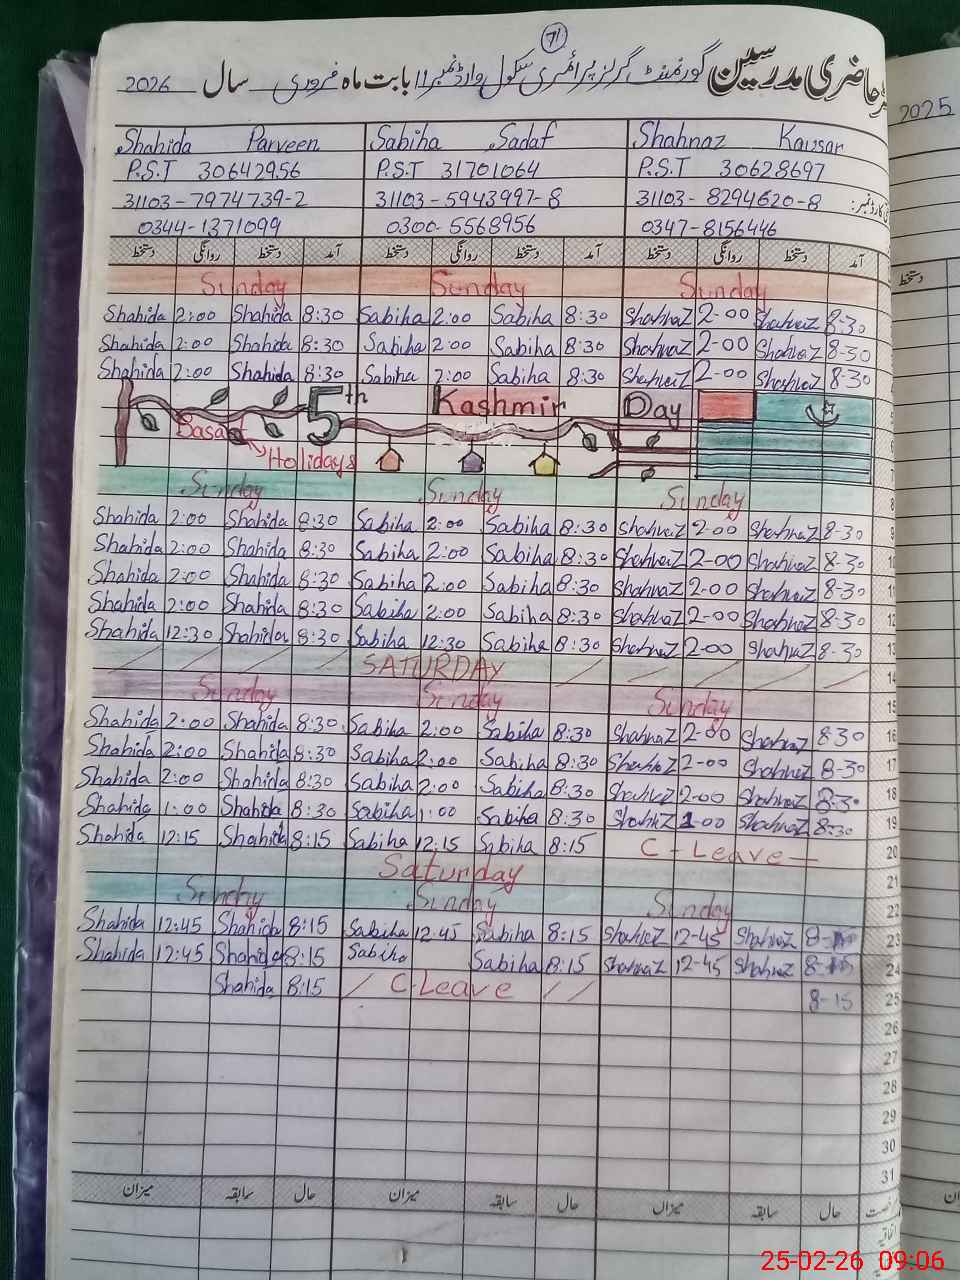 71
حاضری مدرسین گورنمنٹ گرلز پرائمری سکول وارڈ نمبر 11 بابت ماہ فروری سال 2026
2025
Shahida Parveen Sabiha Sadaf Shahnaz Kausar
P.S.T 30642956 P.S.T 31701064 P.S.T 30628697
31103-7974739-2 31103-5943997-8 31103-8294620-8
0344-1371099 0300-5568956 0347-8156446
آمد دستخط روانگی دستخط آمد دستخط روانگی دستخط آمد دستخط روانگی دستخط
دستخط
Sunday Sunday Sunday
Shahida 2:00 Shahida 8:30 Sabiha 2:00 Sabiha 8:30 Shahnaz 2-00 Shahnaz 8-30
Shahida 2:00 Shahida 8:30 Sabiha 2:00 Sabiha 8:30 Shahnaz 2-00 Shahnaz 8-30
Shahida 2:00 Shahida 8:30 Sabiha 2:00 Sabiha 8:30 Shahnaz 2-00 Shahnaz 8-30
5th Kashmir Day
Basant
Holidays
Sunday Sunday Sunday 8
Shahida 2:00 Shahida 8:30 Sabiha 2:00 Sabiha 8:30 Shahnaz 2-00 Shahnaz 8-30 9
Shahida 2:00 Shahida 8:30 Sabiha 2:00 Sabiha 8:30 Shahnaz 2-00 Shahnaz 8-30 10
Shahida 2:00 Shahida 8:30 Sabiha 2:00 Sabiha 8:30 Shahnaz 2-00 Shahnaz 8-30 11
Shahida 2:00 Shahida 8:30 Sabiha 2:00 Sabiha 8:30 Shahnaz 2-00 Shahnaz 8-30 12
Shahida 12:30 Shahida 8:30 Sabiha 12:30 Sabiha 8:30 Shahnaz 2-00 Shahnaz 8-30 13
SATURDAY 14
Sunday Sunday Sunday 15
Shahida 2:00 Shahida 8:30 Sabiha 2:00 Sabiha 8:30 Shahnaz 2-00 Shahnaz 8-30 16
Shahida 2:00 Shahida 8:30 Sabiha 2:00 Sabiha 8:30 Shahnaz 2-00 Shahnaz 8-30 17
Shahida 2:00 Shahida 8:30 Sabiha 2:00 Sabiha 8:30 Shahnaz 2-00 Shahnaz 8-30 18
Shahida 1:00 Shahida 8:30 Sabiha 1:00 Sabiha 8:30 Shahnaz 1-00 Shahnaz 8-30 19
Shahida 12:15 Shahida 8:15 Sabiha 12:15 Sabiha 8:15 C - Leave 20
Saturday 21
Sunday Sunday Sunday 22
Shahida 12:45 Shahida 8:15 Sabiha 12:45 Sabiha 8:15 Shahnaz 12-45 Shahnaz 23
Shahida 12:45 Shahida 8:15 Sabiha Sabiha 8:15 Shahnaz 12-45 Shahnaz 24
Shahida 8:15 / C-Leave / / 8-15 25
26
27
28
29
30
31
حال سابقہ میزان حال سابقہ میزان حال سابقہ میزان
25-02-26 09:06